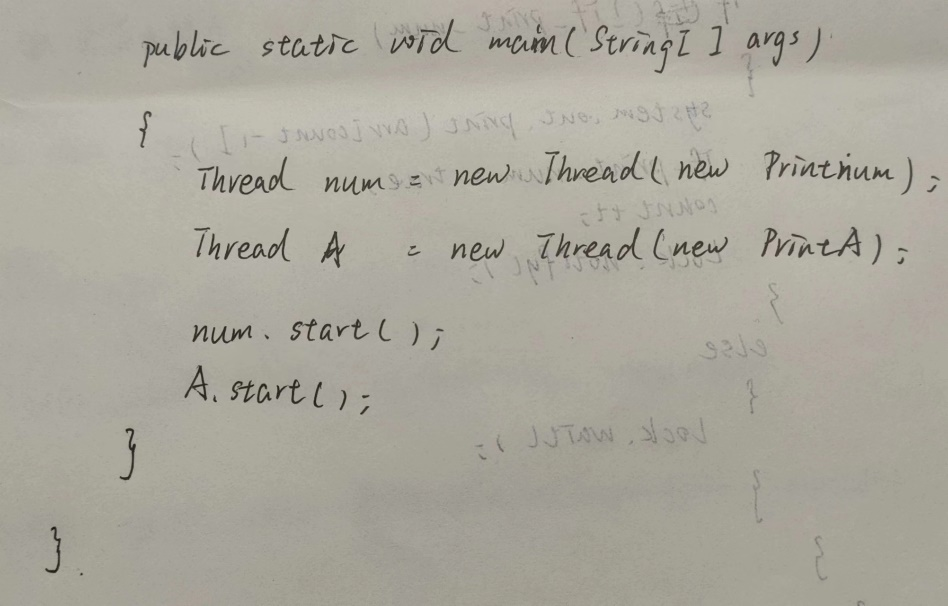 public static void main(String[ ] args)
{
Thread num = new Thread(new Printnum);
Thread A = new Thread(new PrintA);
num.start();
A.start();
}
}.